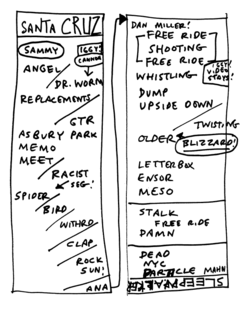 SANTA CRUZ
SAMMY
IGGY!
CANNON
ANGEL
DR. WORM
REPLACEMENTS
GTR
ASBURY PARK
MEMO
MEET
RACIST
SEG!
SPIDER
BIRD
WITHRO
CLAP
ROCK
SUN!
ANA
DAN MILLER!
FREE RIDE
SHOOTING
FREE RIDE
WHISTLING
(SET!
VIDEO
STAYS!
DUMP
UPSIDE DOWN
TWISTING
OLDER
BLIZZARD!
LETTERBOX
ENSOR
MESO
STALK
FREE RIDE
DAMN
DEAD
NYC
PARTICLE MAHN
SLEEPWALKER